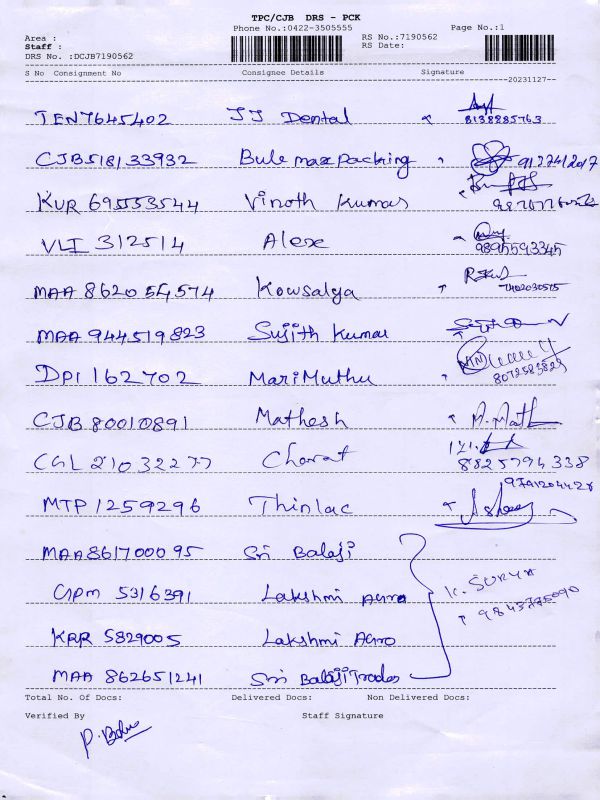 TPC/CJB DRS - PCK
Phone No.:0422-3505555 Page No.:1
Area :
Staff : RS No.:7190562
DRS No. :DCJB7190562 RS Date:
S No Consignment No Consignee Details Signature
20231127
JEN7645402 JJ Dental 8138885763
CJB518133932 Bulemax packing
KUR 69553544 Vinoth Kumar
VLI 312514 Alex 9895593345
MAA 862054574 Kowsalya 7402030575
MAA 944519823 Sujith Kumar
DPI 162702 MariMuthu 8072583823
CJB 80010891 Mathesh M.Math
CGL 21032277 Charat 8825794338
MTP 1259296 Thinlac
MAA861700095 Sri Balaji
GPM 5316391 Lakshmi Agro K. SURYA
KRR 5829005 Lakshmi Agro 9843775090
MAA 862651241 Sri Balaji Trades
Total No. Of Docs: Delivered Docs: Non Delivered Docs:
Verified By Staff Signature